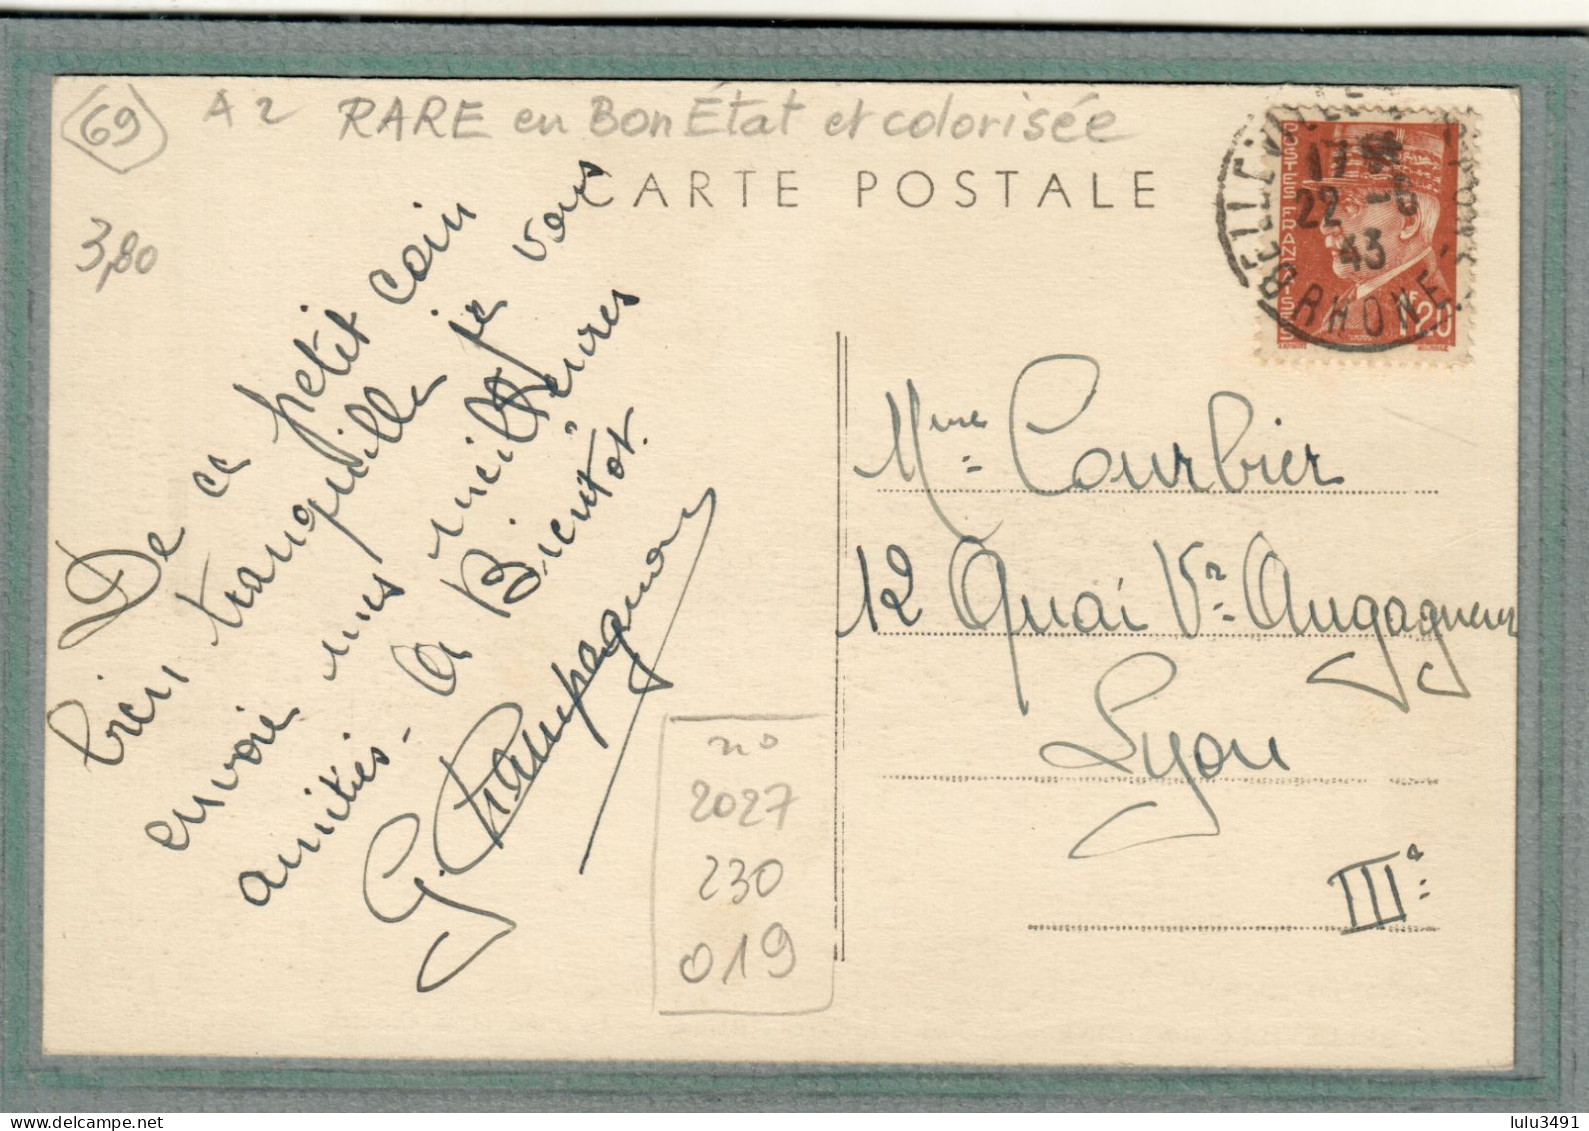 69
A2 RARE en Bon État et colorisée
CARTE POSTALE
3,80
De ce petit coin
bien tranquille je vous
envoie mes meilleures
amitiés - A Bientot.
G. Champagnon
no
2027
230
019
BELLEVILLE
17
22 -6
43
RHONE
POSTES FRANÇAISES
1F20
Mme Courbier
12 Quai Vr Augagneur
Lyon
IIIe
www.delcampe.net
lulu3491